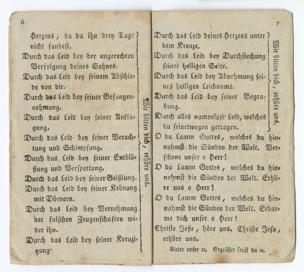 6
Herzens, da du ihn drey Tage
nicht fandest.
Durch das Leid bey der ungerechten
Verfolgung deines Sohnes.
Durch das Leid bey seinem Abschie-
de von dir.
Durch das Leid bey seiner Gefangen-
nehmung.
Durch das Leid bey seiner Ankla-
gung.
Durch das Leid bey seiner Verach-
tung und Schimpfung.
Durch das Leid bey seiner Entblö-
sung und Verspottung.
Durch das Leid bey seiner Geißlung.
Durch das Leid bey seiner Krönung
mit Dörnern.
Durch das Leid bey Vernehmung
der falschen Zeugenschaften wi-
der ihn.
Durch das Leid bey seiner Kreuzi-
gung
Wir bitten dich, erhöre uns.
7
Durch das Leid deines Herzens unter
dem Kreuze.
Durch das Leid bey Durchstechung
seiner heiligen Seite.
Durch das Leid bey Abnehmung sei-
nes heiligen Leichnams.
Durch das Leid bey seiner Begra-
bung.
Durch alles namenlose Leid, welches
du seinetwegen getragen.
O du Lamm Gottes, welches du hin-
nahmst die Sünden der Welt. Ver-
schone unser o Herr!
O du Lamm Gottes, welches du hin-
nahmst die Sünden der Welt. Erhö-
re uns o Herr!
O du Lamm Gottes, welches du hin-
nahmst die Sünden der Welt. Erbar-
me dich unser o Herr!
Christe Jesu, höre uns, Christe Jesu,
erhöre uns.
Vater unser ꝛc. Gegrüßet seyst du ꝛc.
Wir bitten dich, erhöre uns.